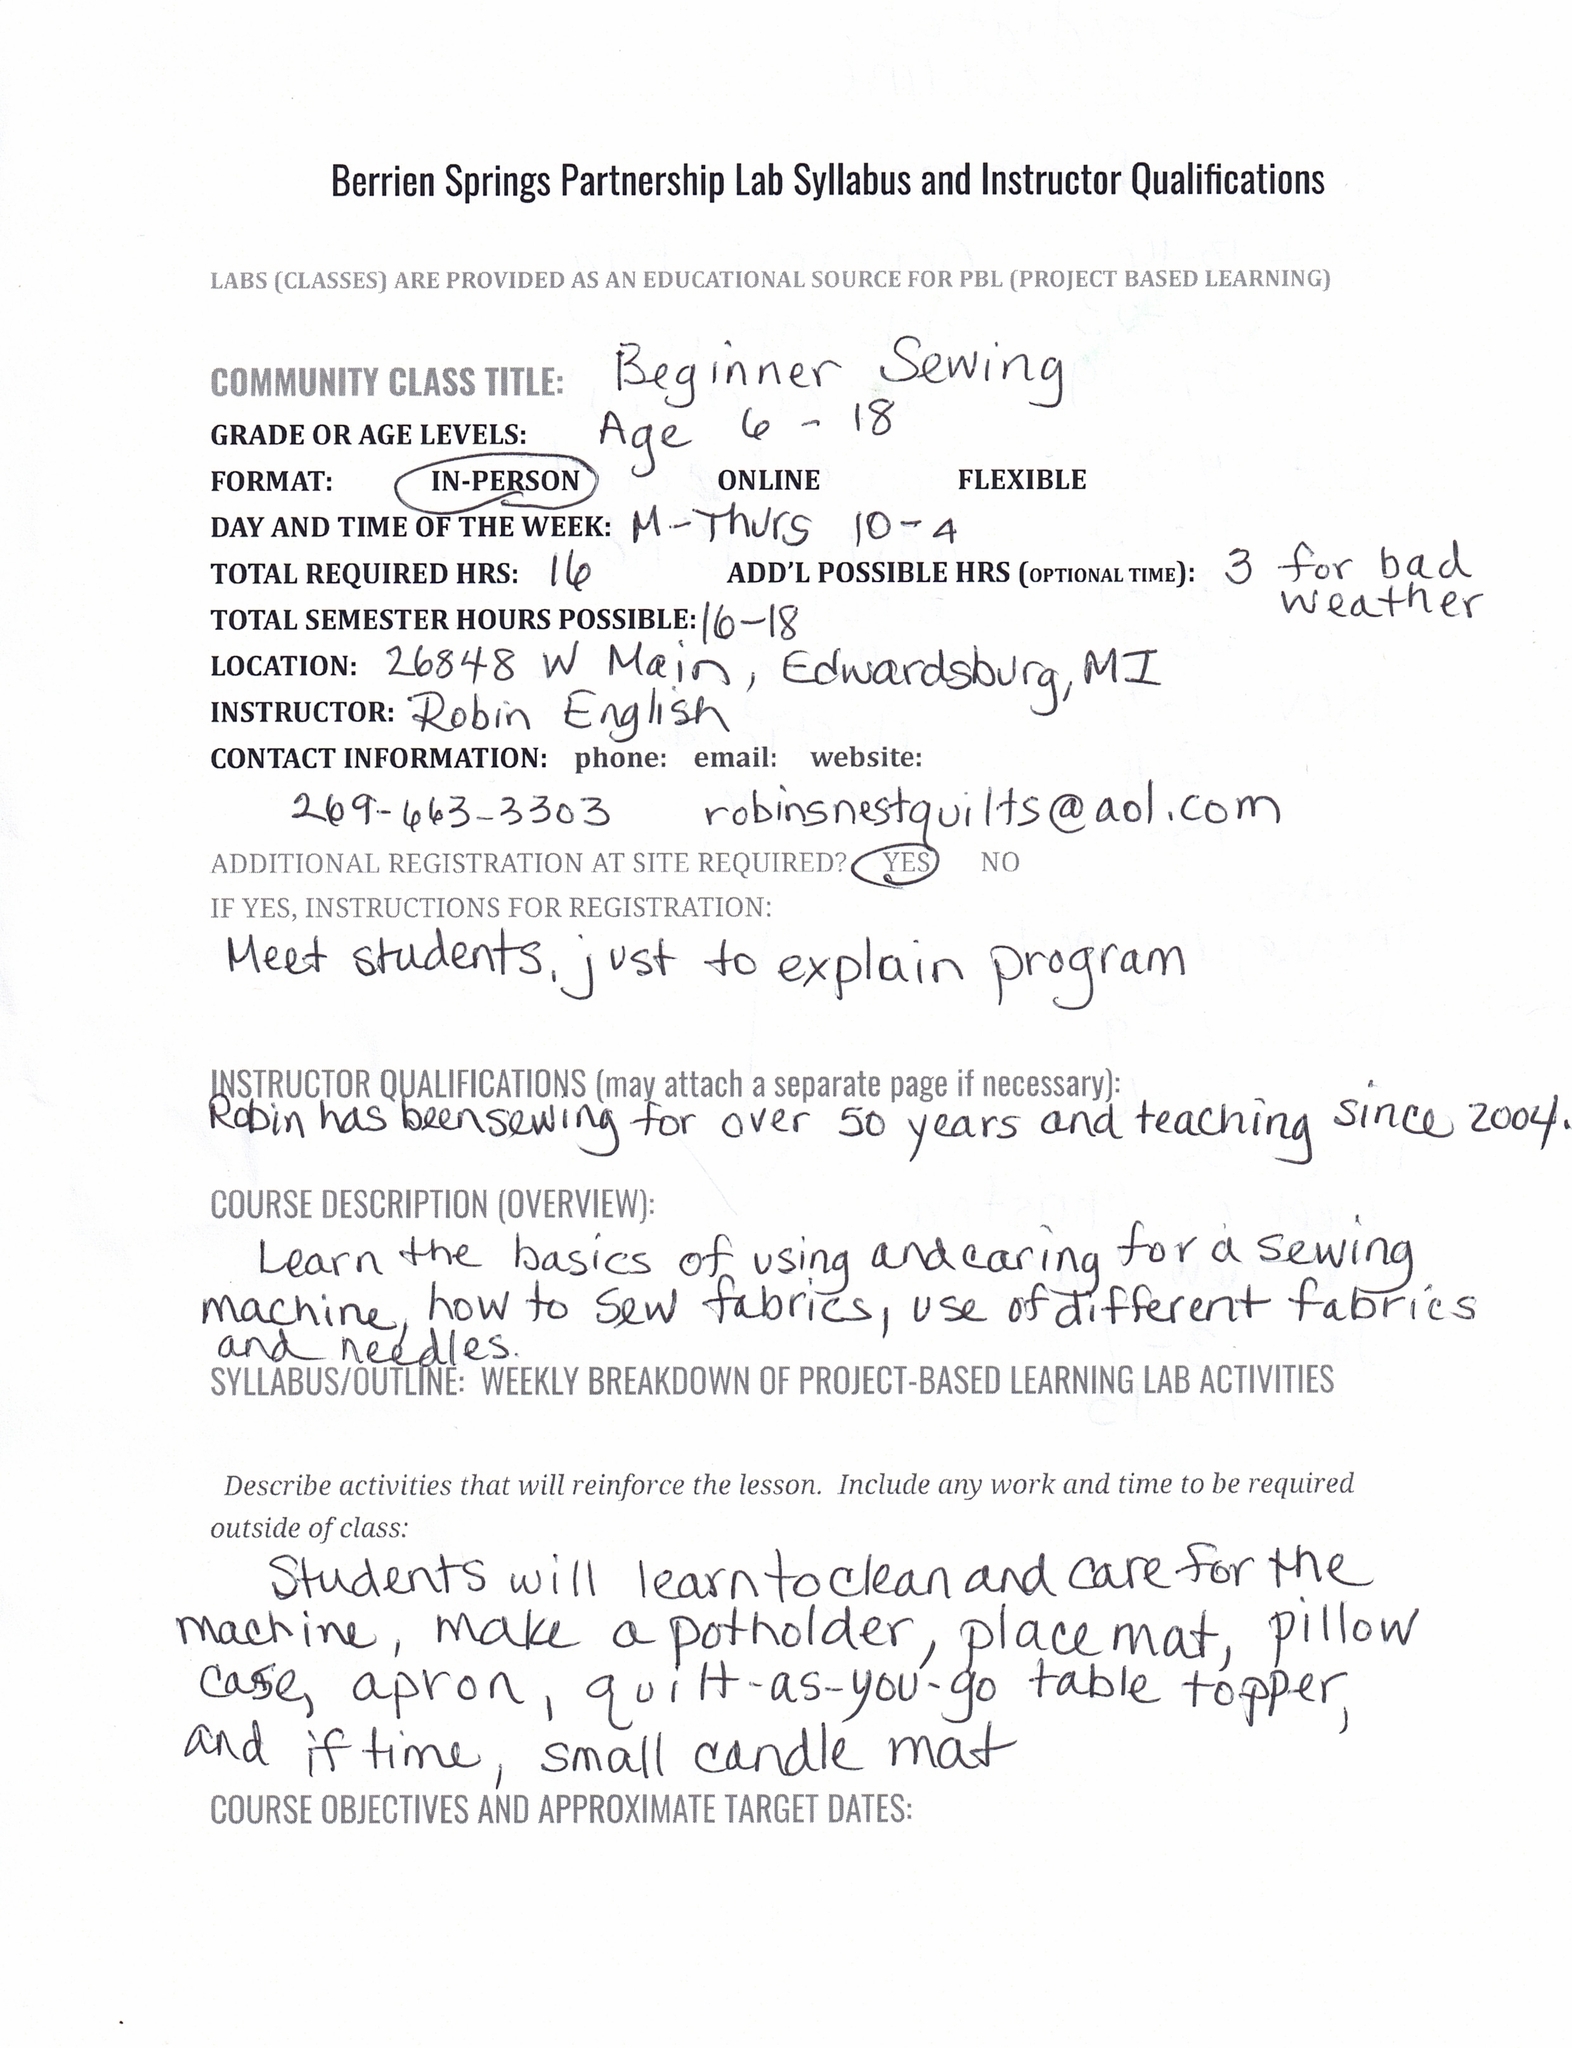 Berrien Springs Partnership Lab Syllabus and Instructor Qualifications
LABS (CLASSES) ARE PROVIDED AS AN EDUCATIONAL SOURCE FOR PBL (PROJECT BASED LEARNING)
COMMUNITY CLASS TITLE: Beginner Sewing
GRADE OR AGE LEVELS: Age 6 - 18
FORMAT: IN-PERSON ONLINE FLEXIBLE
DAY AND TIME OF THE WEEK: M-Thurs 10-4
TOTAL REQUIRED HRS: 16 ADD'L POSSIBLE HRS (OPTIONAL TIME): 3 for bad
weather
TOTAL SEMESTER HOURS POSSIBLE: 16-18
LOCATION: 26848 W Main, Edwardsburg, MI
INSTRUCTOR: Robin English
CONTACT INFORMATION: phone: email: website:
269-663-3303 robinsnestquilts@aol.com
ADDITIONAL REGISTRATION AT SITE REQUIRED? YES NO
IF YES, INSTRUCTIONS FOR REGISTRATION:
Meet students, just to explain program
INSTRUCTOR QUALIFICATIONS (may attach a separate page if necessary):
Robin has been sewing for over 50 years and teaching since 2004.
COURSE DESCRIPTION (OVERVIEW):
Learn the basics of using and caring for a sewing
machine, how to sew fabrics, use of different fabrics
and needles.
SYLLABUS/OUTLINE: WEEKLY BREAKDOWN OF PROJECT-BASED LEARNING LAB ACTIVITIES
Describe activities that will reinforce the lesson. Include any work and time to be required
outside of class:
Students will learn to clean and care for the
machine, make a potholder, place mat, pillow
case, apron, quilt-as-you-go table topper,
and if time, small candle mat
COURSE OBJECTIVES AND APPROXIMATE TARGET DATES: